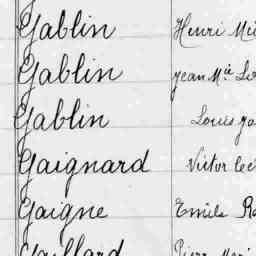 Gablin Henri
Gablin Jean M.ie
Gablin Louis
Gaignard Victor
Gaigne Emile
Gaillard Pierre